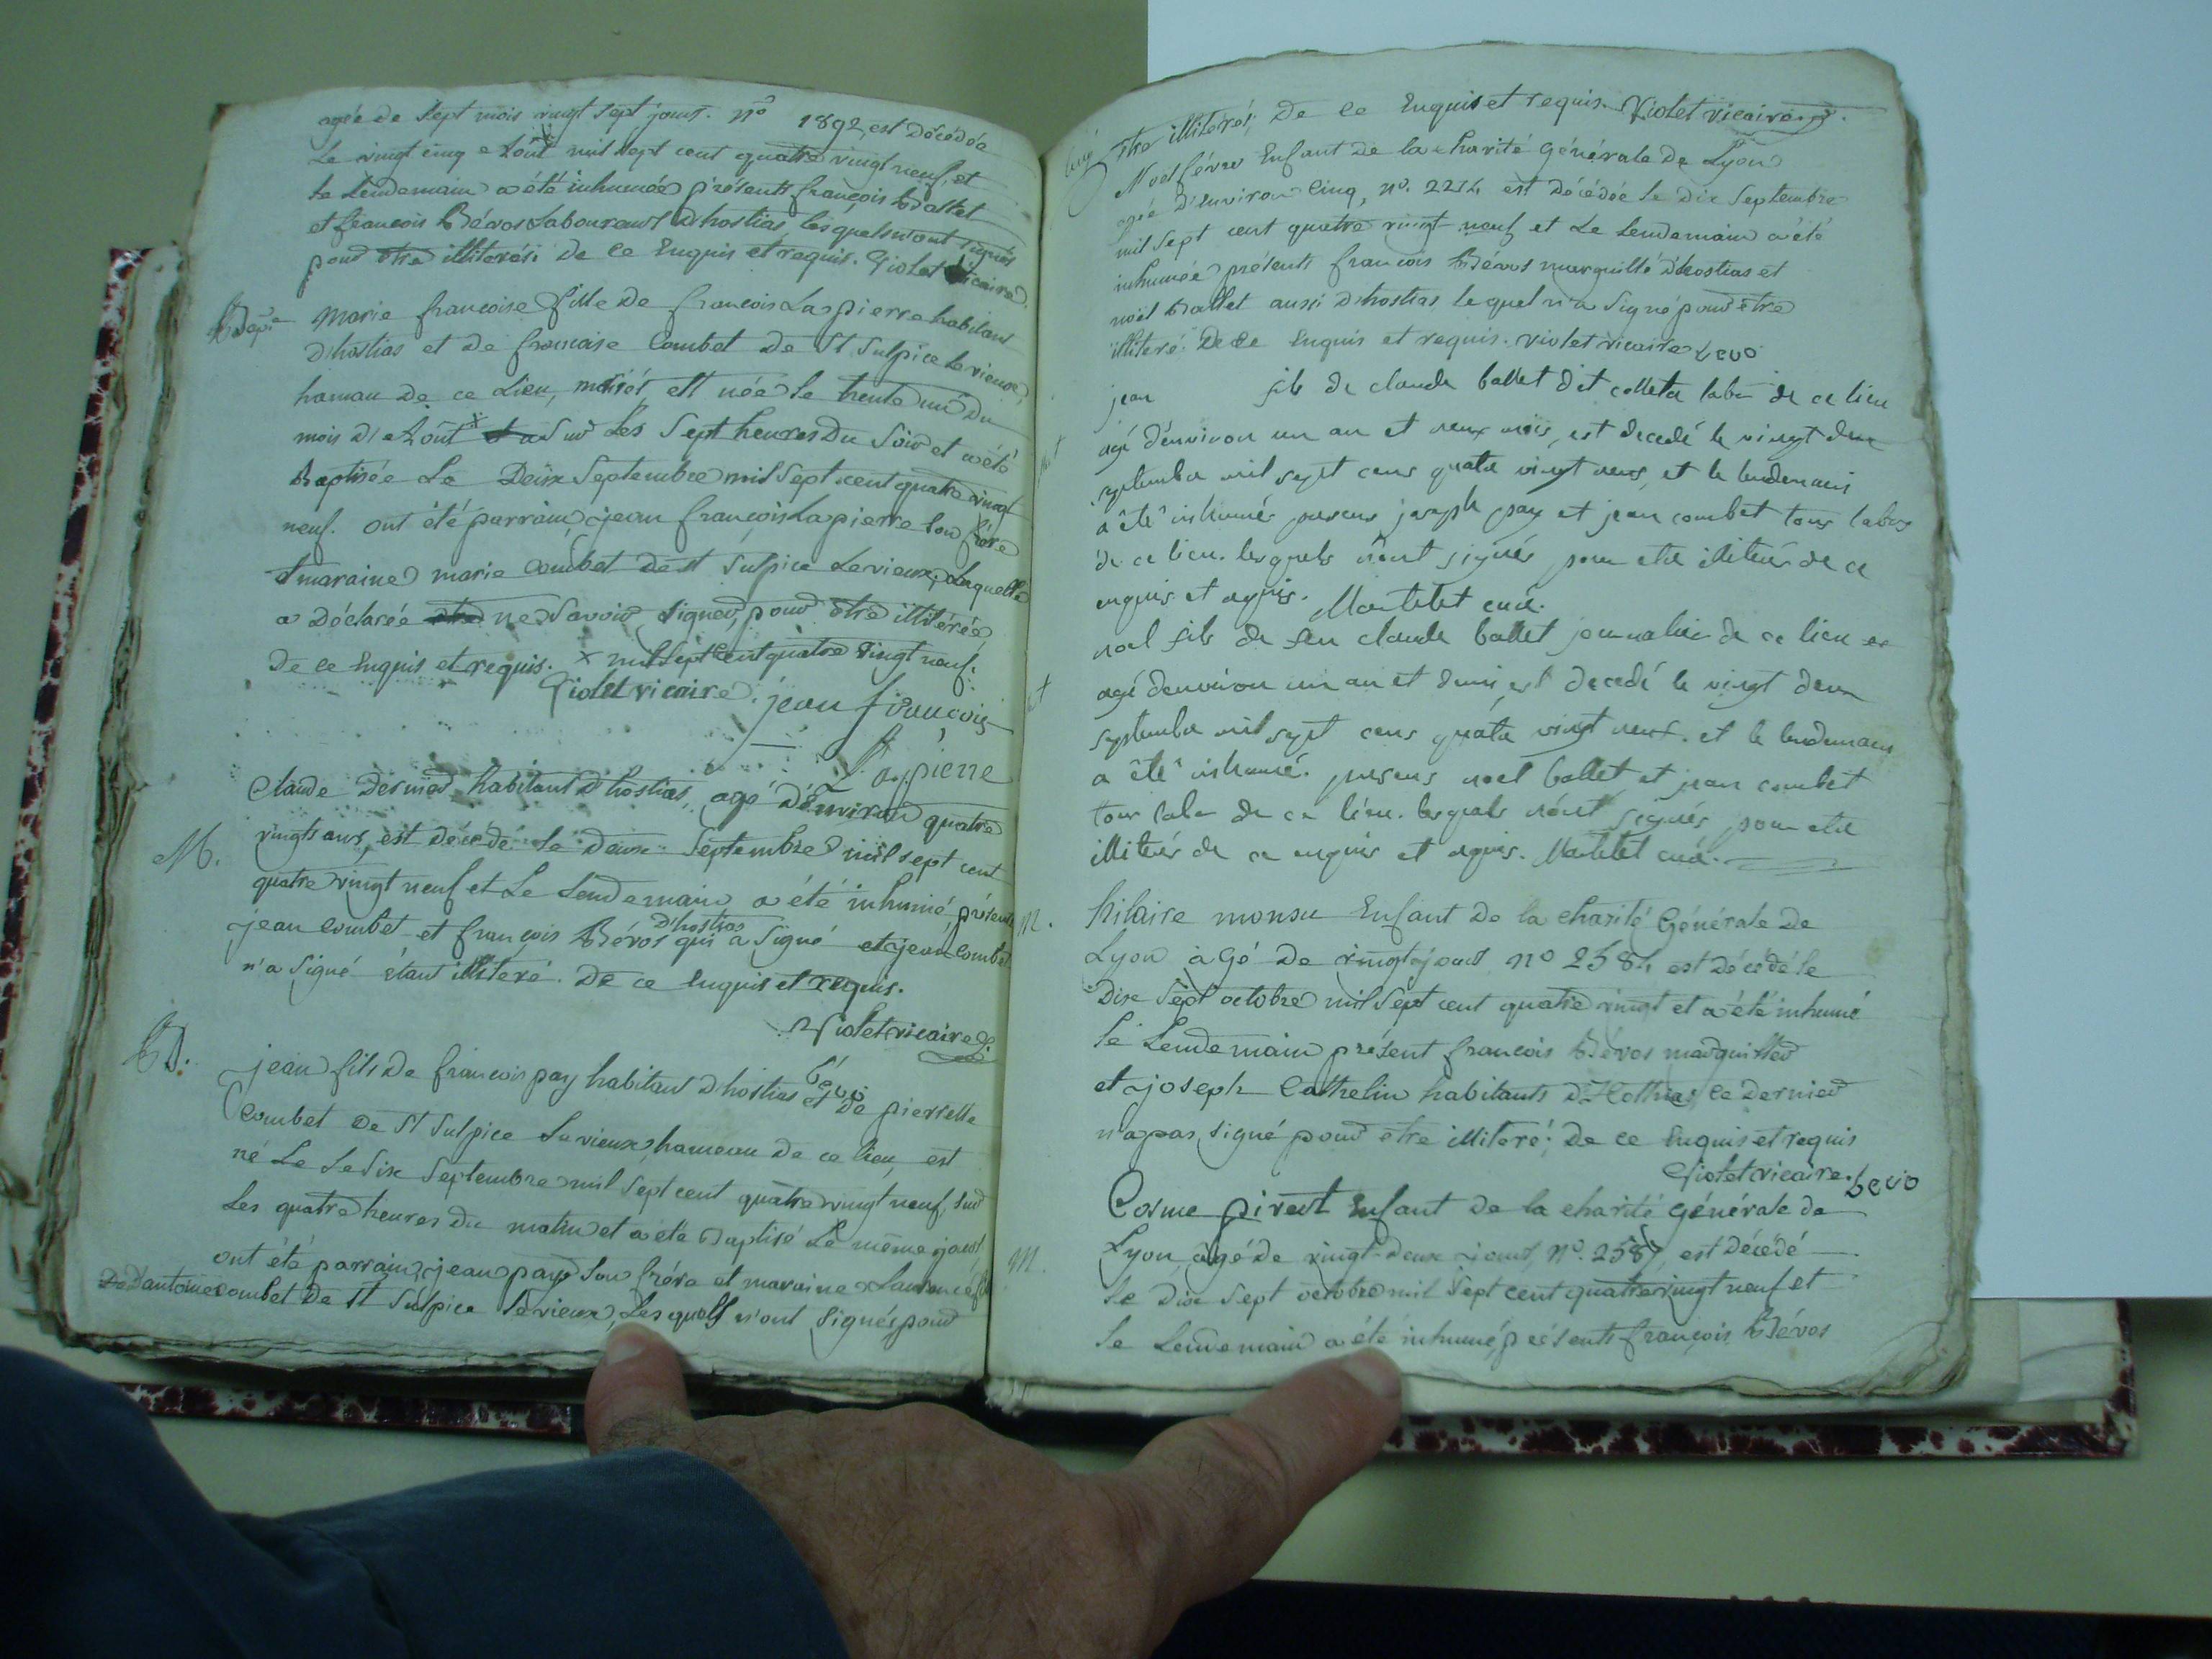 agée de Sept mois vingt Sept jours. no 1892, est décédée
Le vingt cinq août mil Sept cent quatre vingt neuf, et
le Lendemain a été inhumée présents françois Ballet
et françois Bévos Laboureurs d'hostias, lesquels n'ont signés
pour être illiterés: De ce Enquis et requis. Violet vicaire
Bap. Marie françoise fille De françois Lapierre habitant
d'hostias et de françoise Combet De St Sulpice Le vieux,
hameau De ce Lieu, mariés, est née Le trente un Du
mois D'août Sur Les Sept heures Du Soir et a été
Baptisée Le Deux Septembre mil Sept cent quatre vingt
neuf. ont été parrain, jean françois Lapierre Son frère
et maraine marie Combet De St Sulpice Le vieux, Laquelle
a Déclarée ne Savoir Signer, pour être illitérée,
De ce Enquis et requis. x mil Sept cent quatre vingt neuf.
Violet vicaire. jean françois
Lapierre
Claude Dernier habitant D'hostias, agé D'Environ quatre
M. vingts ans, est décédé Le Deux Septembre mil Sept cent
quatre vingt neuf et Le Lendemain a été inhumé, présents
jean Combet et françois Bévos d'hostias qui a Signé et jean Combet
n'a Signé étant illiteré. De ce Enquis et requis.
Violet vicaire
Bévo
B. jean fils De françois pay habitant D'hostias et De pierrette
Combet De St Sulpice Le vieux, hameau De ce lieu, est
né Le Le Six Septembre mil Sept cent quatre vingt neuf, Sur
Les quatre heures Du matin et a été Baptisé Le même jour
ont été parrain, jean pay Son frére et maraine Laurence fille
D'antoine Combet De St Sulpice Le vieux, Lesquels n'ont Signés pour
être illiterés; De ce Enquis et requis. Violet vicaire.
Noel févre Enfant De la Charité Générale De Lyon
agée d'Environ Cinq, no. 2214 est Décédée Le Dix Septembre
mil Sept cent quatre vingt neuf et Le Lendemain a été
inhumée présents françois Bévos marguillé d'hostias et
noël Ballet aussi D'hostias lequel n'a Signé pour être
illiteré: De ce Enquis et requis. Violet vicaire Bevo
jean fils de claude ballet dit colleta labr de ce lieu
agé d'environ un an et neux mois, est decedé le vingt deux
septembre mil sept cens quatre vingt neuf, et le lendemain
a été inhumé presens joseph pay et jean combet tous labrs
de ce lieu. lesquels n'ont signés pour etre illiterés de ce
enquis et requis. Martelet curé.
noel fils de feu claude ballet journalier de ce lieu
agé denviron un an et demi, est decedé le vingt deux
septembre mil sept cens quatre vingt neuf. et le lendemain
a été inhumé. presens noel ballet et jean combet
tous labr de ce lieu. lesquels n'ont signés pour etre
illiterés de ce enquis et requis. Martelet curé.
M. hilaire monsu Enfant De la charité Générale De
Lyon àgé De vingt jours no 2584 est Décédé le
Dix Sept octobre mil Sept cent quatre vingt et a été inhumé
le Lendemain présent françois Bévos marguiller
et joseph Cathelin habitants D'Hostias, ce Dernier
n'a pas signé pour être illiteré; De ce Enquis et requis
Violet vicaire. Bevo
Cosme pirent Enfant De la charité générale de
M. Lyon, âgé De vingt-Deux jours, no. 2587, est Décédé
le Dix Sept octobre mil Sept cent quatre vingt neuf et
le Lendemain a été inhumé, présents françois Bévos